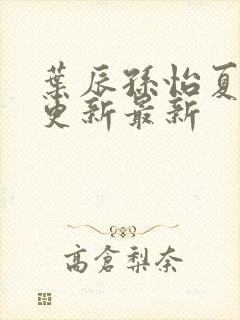 葉辰孫怡夏
更新最新
高倉梨奈